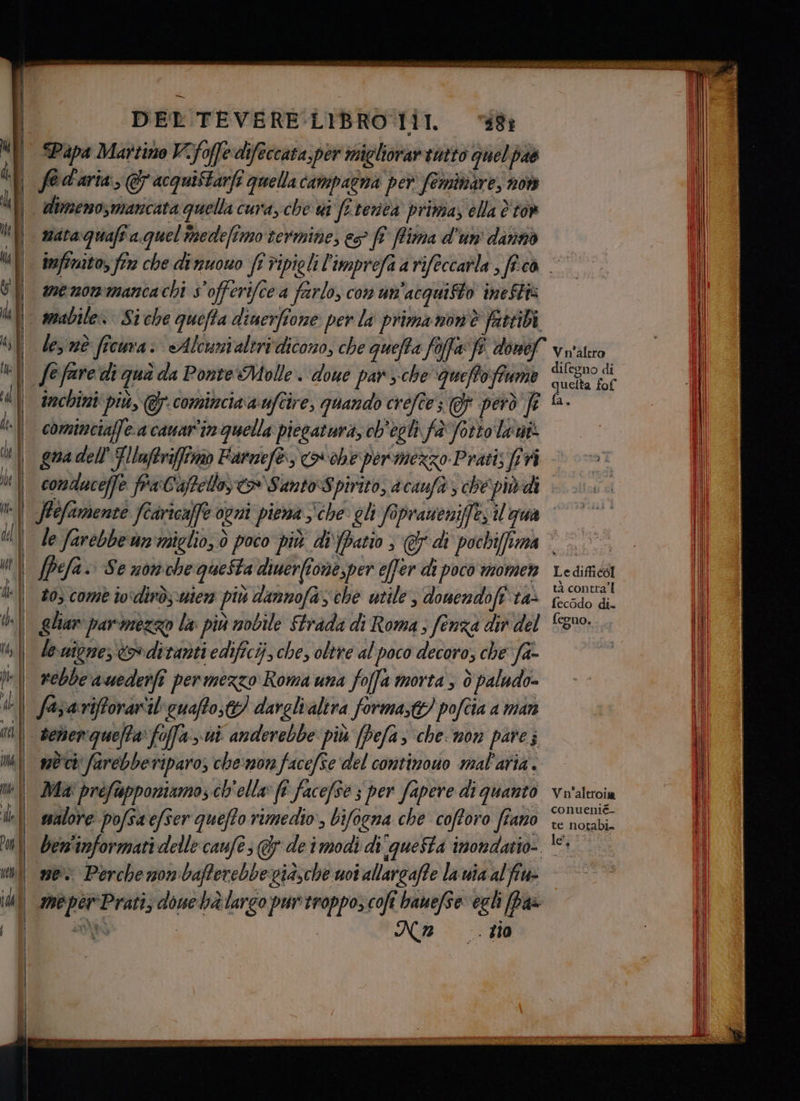 DEL TEVERE LIBRO III. 281
Papa Martino V. foſſe diſeccata, per migliorar tutto quel pae
ſe d'aria, & acquiſtarſi quella campagna per ſeminare, non
dimeno, mancata quella cura, che ui ſi tenea prima, ella è tor
nata quaſi a quel medeſimo termine, & ſi ſtima d'un danno
infinito, fin che di nuouo ſi ripigli l'impreſa a riſeccarla, ſi co
me non manca chi s'offeriſce a farlo, con un'acquiſto ineſti-
mabile. Si che queſta diuerſione per la prima non è fattibi
le, nè ſicura. Alcuni altri dicono, che queſta foſſa ſi doueſ
ſe fare di quà da Ponte Molle. doue par, che queſto fiume
inchini più, & comincia a uſcire, quando creſce; & però ſi
cominciaſſe a cauar in quella piegatura, ch'egli fà ſotto la ui-
gna dell' Illuſtriſſimo Farneſe, & che per mezzo Prati, ſi ri
conduceſſe fra Caſtello, & Santo Spirito, a cauſa, che più di
ſteſamente ſcaricaſſe ogni piena, che gli ſoprauenisſe, il qua
le ſarebbe un miglio, ò poco più di ſpatio, & di pochiſſima
ſpeſa. Se non che queſta diuerſione, per eſſer di poco momen
to, come io dirò, uien più dannoſa, che utile, douendoſi ta-
gliar par mezzo la più nobile ſtrada di Roma, ſenza dir del
le uigne, & di tanti edificij, che, oltre al poco decoro, che ſa-
rebbe a uederſi per mezzo Roma una foſſa morta, ò paludo-
ſa, a riſtorar il guaſto, & dargli altra forma, & poſcia a man
tener queſta foſſa, ui anderebbe più ſpeſa, che non pare;
nè ci ſarebbe riparo, che non faceſſe del continouo mal'aria.
Ma preſupponiamo, ch'ella ſi faceſſe; per ſapere di quanto
ualore poſſa eſſer queſto rimedio, biſogna che coſtoro ſiano
ben'informati delle cauſe, & de i modi di queſta inondatio-
ne. Perche non baſterebbe già, che uoi allargaſte la uia al fiu-
me per Prati, doue hà largo pur troppo, coſi haueſſe egli ſpa-
Nn tio
Vn'altro
diſegno di
queſta foſ
ſa.
Le difficol
tà contra'l
ſecōdo di-
ſegno.
Vn'altroin
conueniē-
te notabi-
le.